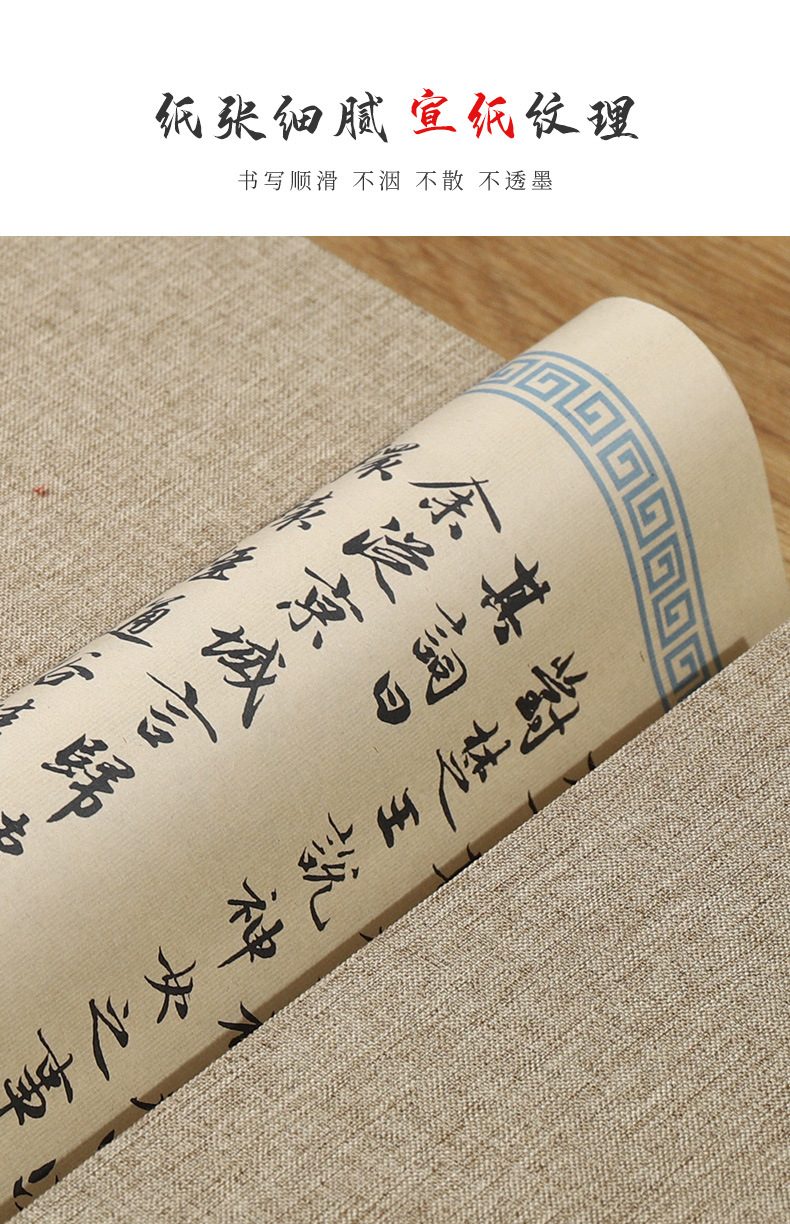 纸张细腻 宣纸纹理
书写顺滑 不洇 不散 不透墨
對楚王說神女之事
其詞曰
余從京域言歸
通谷